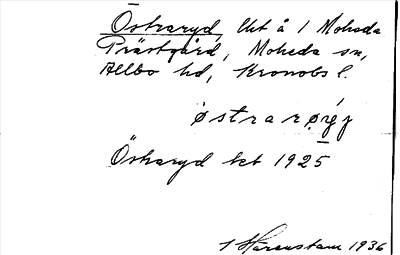 Östraryd, lht å 1 Moheda
Prästgård, Moheda sn,
Allbo hd, Kronobs l.
østrarøj
Östraryd kt 1925
Harenstam 1936